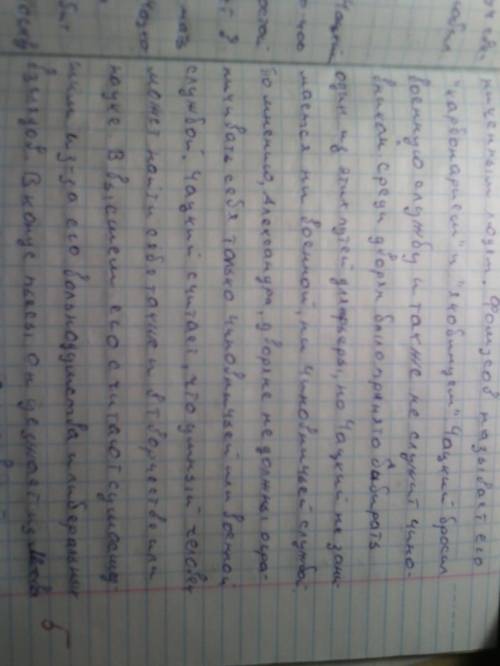 ниченным людям. Фамусов называет его
"карбонарием" и "якобинцем". Чацкий бросил
военную службу и также не служит чино-
вником. Среди дворян было принято выбирать
один из этих путей для карьеры, но Чацкий не зани-
мается ни военной, ни чиновничьей службой.
По мнению, Александра, дворяне не должны огра-
ничивать себя только чиновничьей или военной
службой. Чацкий считает, что умный человек
может найти себя также и в творчестве или
науке. В высшем его считают сумасшед-
шим из-за его вольнодумства и либеральных
взглядов. В конце пьесы он уезжает из Москвы
5